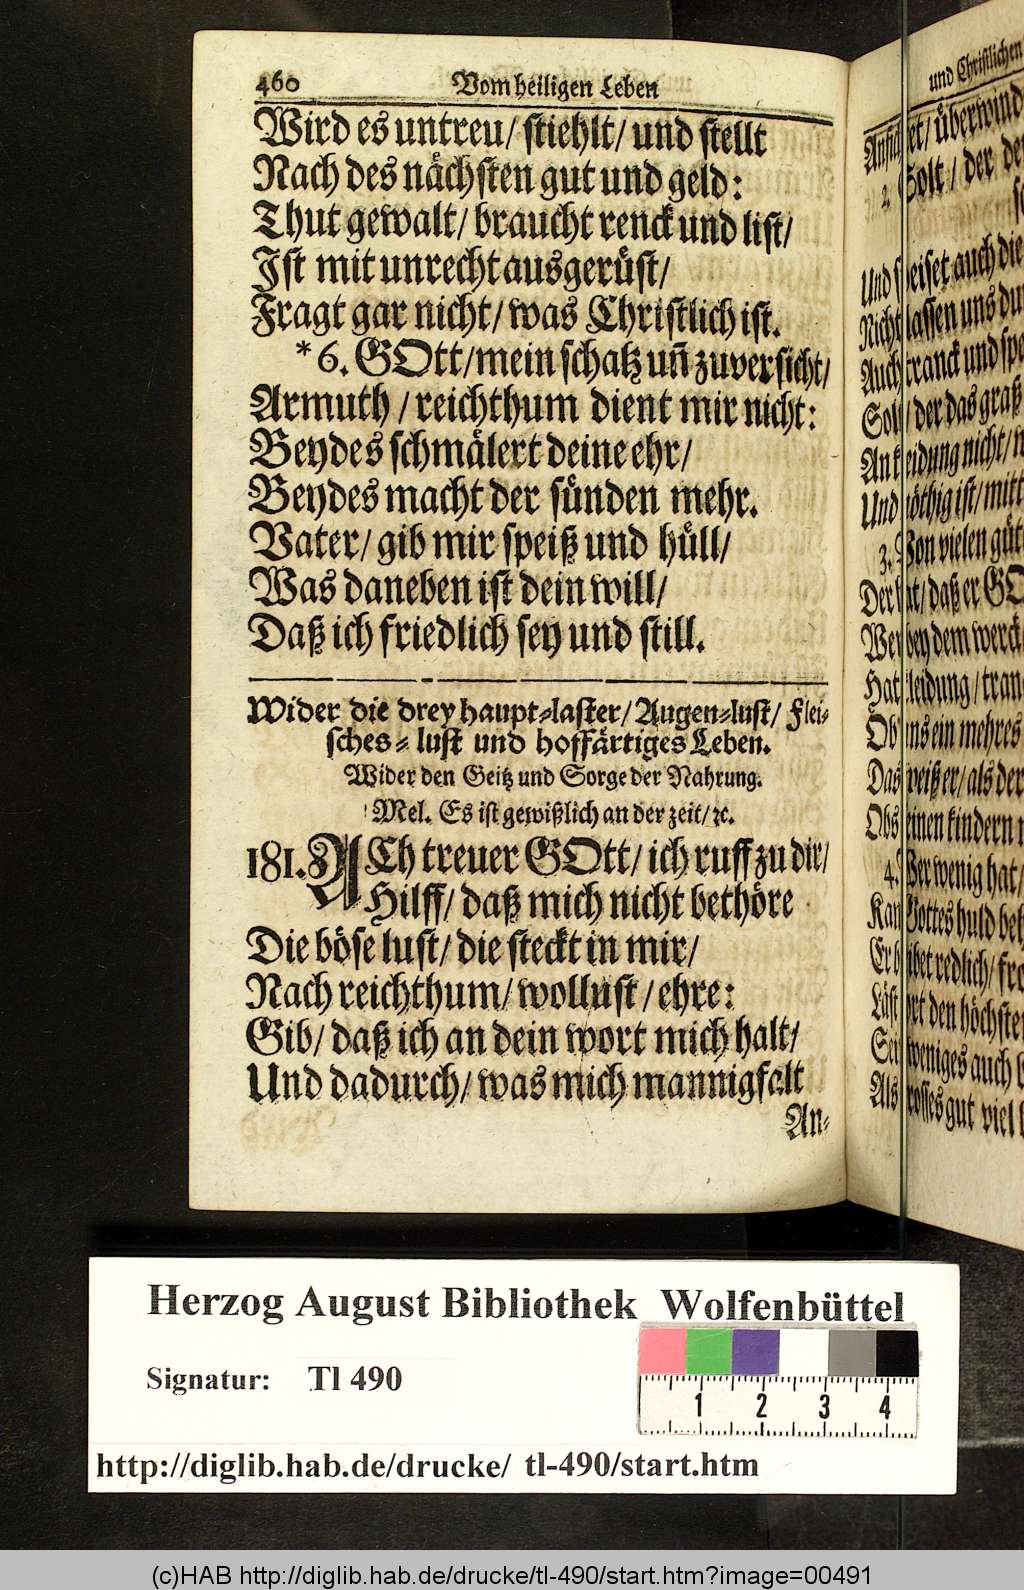 460 Vom heiligen Leben
Wird es untreu/ stiehlt/ und stellt
Nach des nächsten gut und geld:
Thut gewalt/ braucht renck und list/
Ist mit unrecht ausgerüst/
Fragt gar nicht/ was Christlich ist.
*6. GOtt/ mein schatz uñ zuversicht/
Armuth / reichthum dient mir nicht:
Beydes schmälert deine ehr/
Beydes macht der sünden mehr.
Vater/ gib mir speiß und hüll/
Was daneben ist dein will/
Daß ich friedlich sey und still.
Wider die drey haupt-laster/ Augen-lust/ Flei-
sches-lust und hoffärtiges Leben.
Wider den Geitz und Sorge der Nahrung.
Mel. Es ist gewißlich an der zeit/ ꝛc.
181. ACh treuer GOtt/ ich ruff zu dir/
Hilff/ daß mich nicht bethöre
Die böse lust/ die steckt in mir/
Nach reichthum/ wollust/ ehre:
Gib/ daß ich an dein wort mich halt/
Und dadurch/ was mich mannigfalt
An-
und Christlichen
überwind
2. Solt / der
Und speiset auch die
Nicht lassen uns
Auch tranck und
Solt/ der das graß
An kleidung nicht/
Und nöthig ist/
3. Von vielen
Der / daß er
bey dem
Hat kleidung/
Ob uns ein mehres
Das weiß er/ als der
Obs seinen kindern
4. Wer wenig hat/
Kan Gottes huld
redlich/
Läst den
weniges auch
Als grosses gut viel
Herzog August Bibliothek Wolfenbüttel
Signatur: Tl 490
1 2 3 4
http://diglib.hab.de/drucke/ tl-490/start.htm
(c)HAB http://diglib.hab.de/drucke/tl-490/start.htm?image=00491